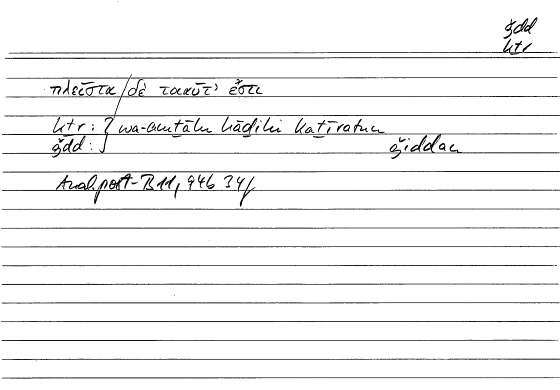 ǧdd
kṯr
πλεῖστα/δὲ τοιαῦτ' ἔστι
kṯr : } wa-amṯālu hāḏihi kaṯīratun
ǧdd : } ǧiddan
Anal. post. B 11, 94b 34f